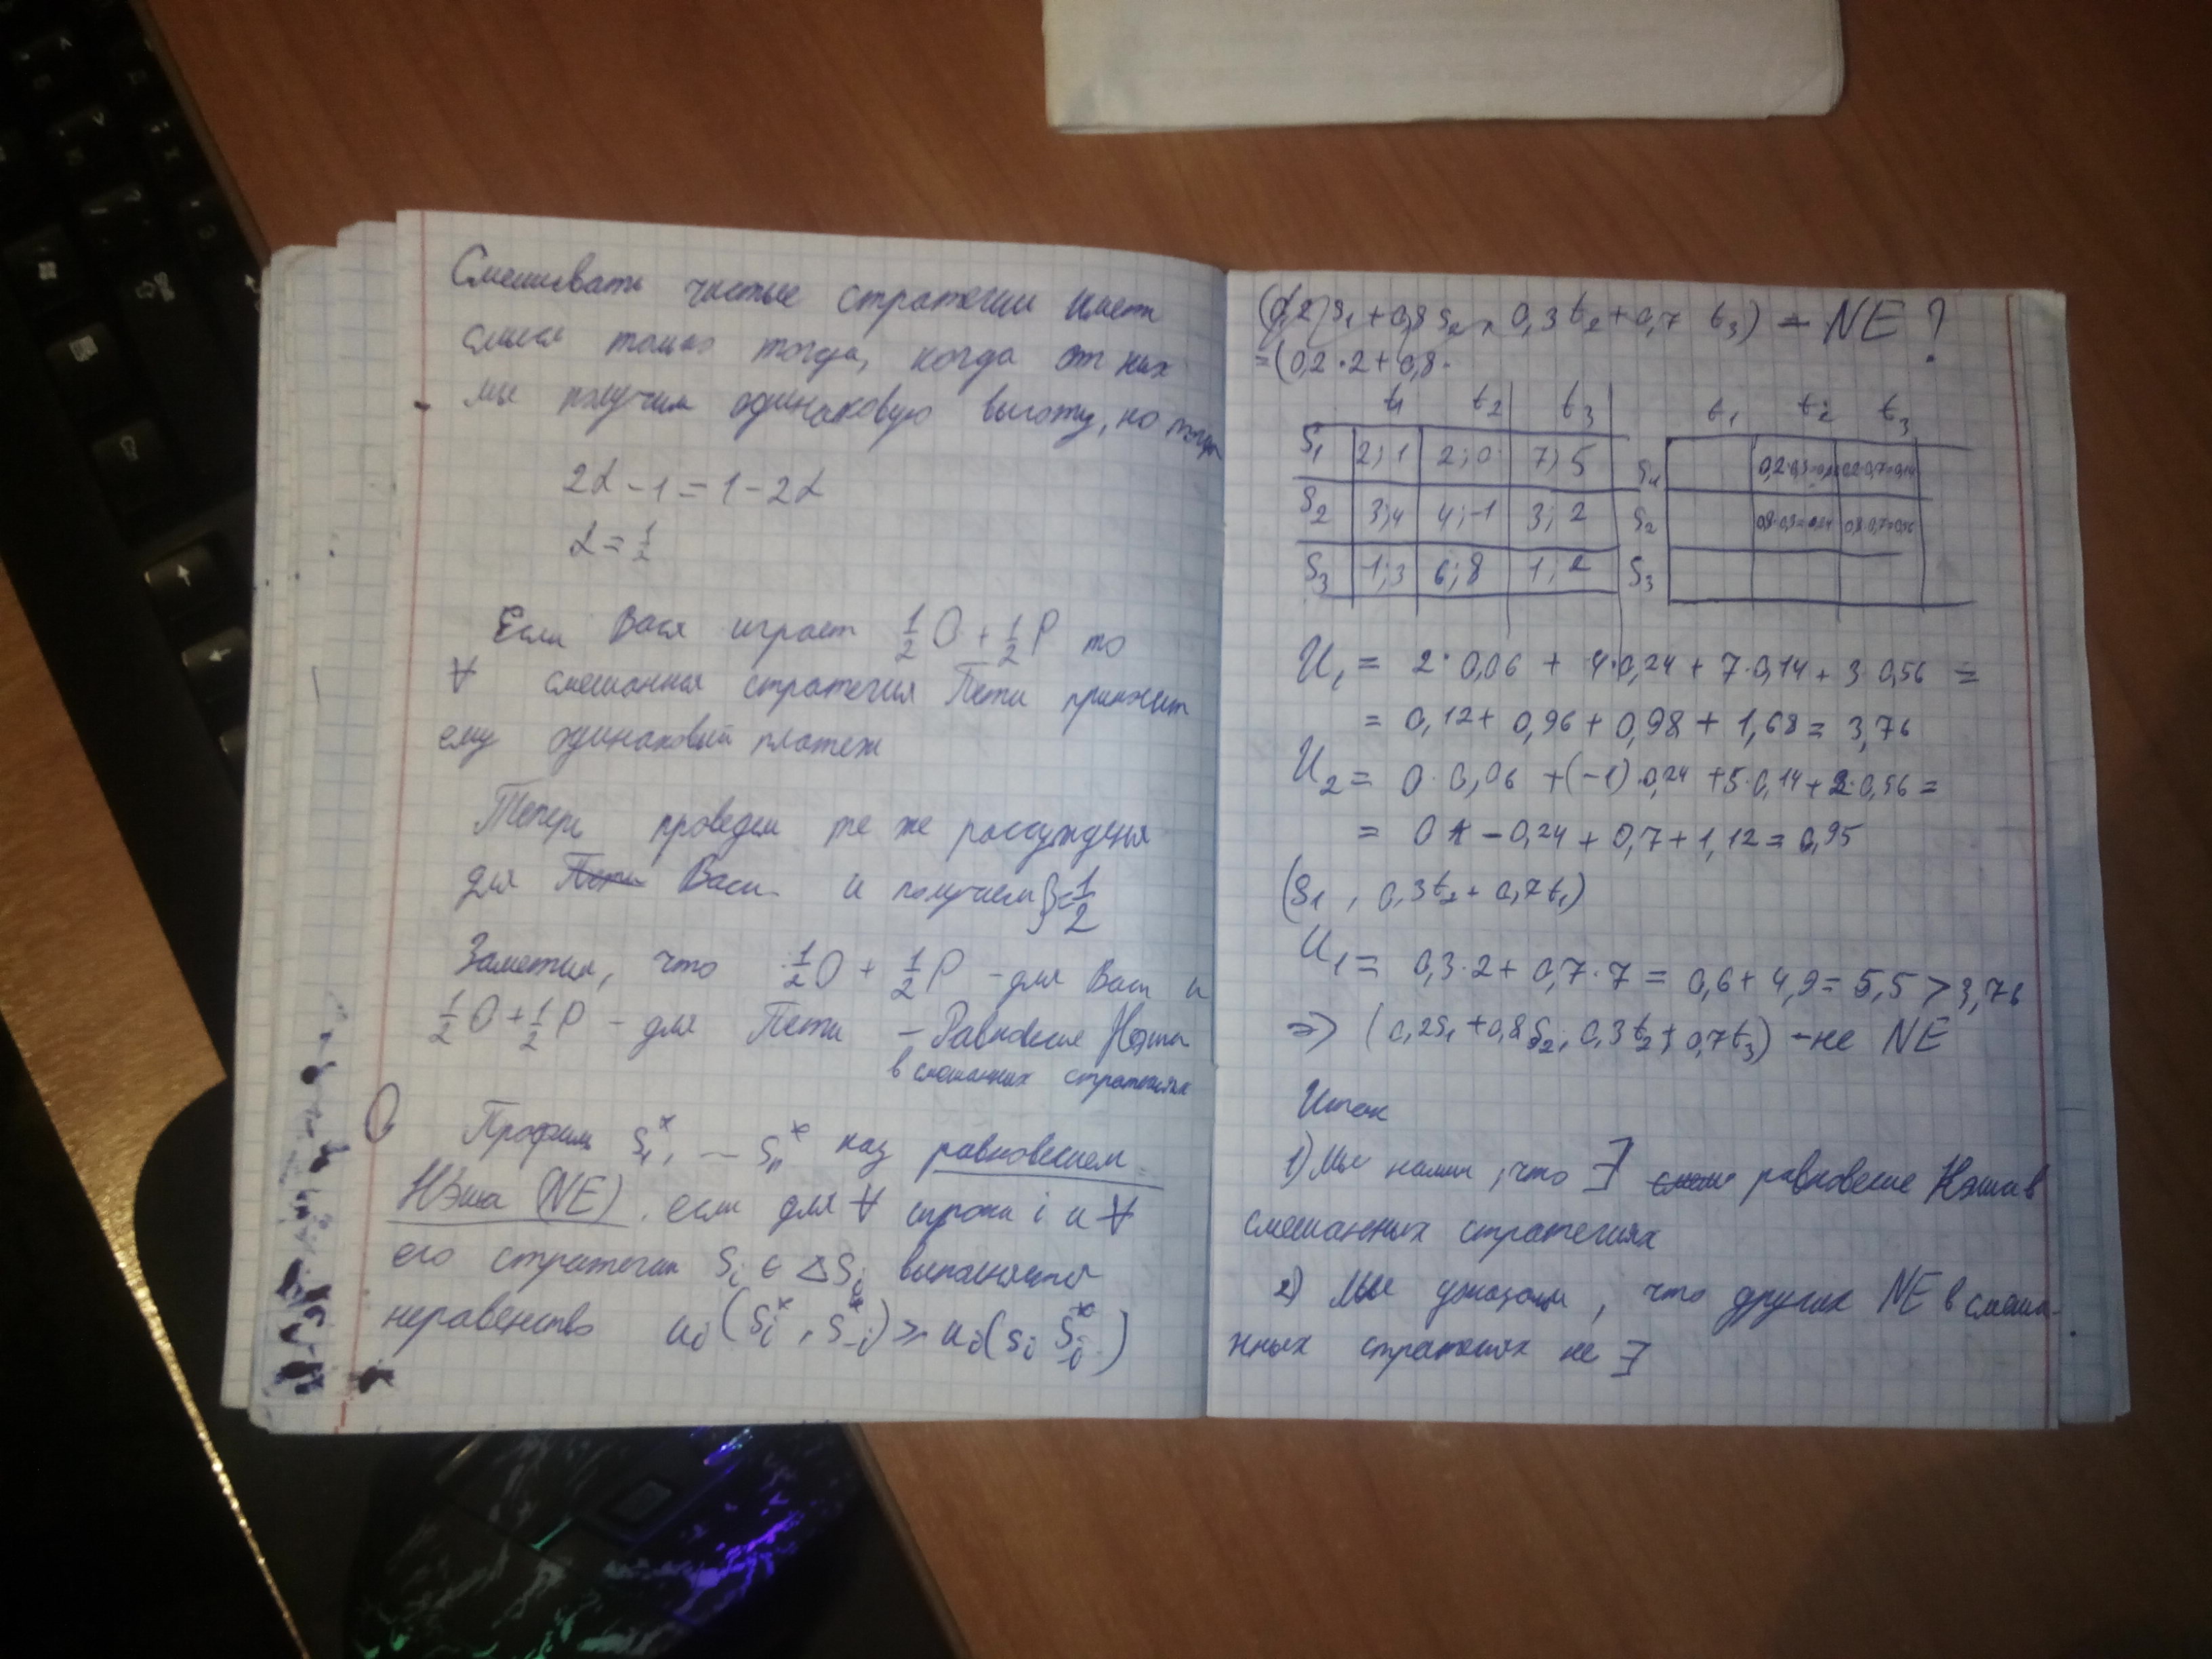 Смешивать чистые стратегии имеет
смысл только тогда, когда от них
мы получим одинаковую выгоду, но тогда
2α - 1 = 1 - 2α
α = 1/2
Если Вася играет 1/2 O + 1/2 P то
∀ смешанная стратегия Пети принесит
ему одинаковый платеж
Теперь проведем те же рассуждения
для Васи и получаем β = 1/2
Заметим, что 1/2 O + 1/2 P - для Васи и
1/2 O + 1/2 P - для Пети - Равновесие Нэша
в смешанных стратегиях
Профиль s₁*, ... sₙ* наз равновесием
Нэша (NE), если для ∀ игрока i и ∀
его стратегии sᵢ ∈ ΔSᵢ выполняется
неравенство uᵢ(sᵢ*, s₋ᵢ*) ⩾ uᵢ(sᵢ s₋ᵢ*)
(0,2 s₁ + 0,8 s₂, 0,3 t₂ + 0,7 t₃) - NE ?
= (0,2·2 + 0,8·
t₁ t₂ t₃
S₁ 2;1 2;0 7;5
S₂ 3;4 4;-1 3;2
S₃ 1;3 6;8 1;2
t₁ t₂ t₃
S₁ 0,2·0,3=0,06 0,2·0,7=0,14
S₂ 0,8·0,3=0,24 0,8·0,7=0,56
S₃
U₁ = 2·0,06 + 4·0,24 + 7·0,14 + 3·0,56 =
= 0,12 + 0,96 + 0,98 + 1,68 = 3,76
U₂ = 0·0,06 + (-1)·0,24 + 5·0,14 + 2·0,56 =
= 0 - 0,24 + 0,7 + 1,12 = 0,95
(S₁, 0,3t₂ + 0,7t₁)
U₁ = 0,3·2 + 0,7·7 = 0,6 + 4,9 = 5,5 > 3,76
=> (0,2s₁ + 0,8s₂; 0,3t₂ + 0,7t₃) - не NE
Итак
1) Мы нашли, что ∃ равновесие Нэша в
смешанных стратегиях
2) Мы указали, что других NE в смеша-
нных стратегиях не ∃